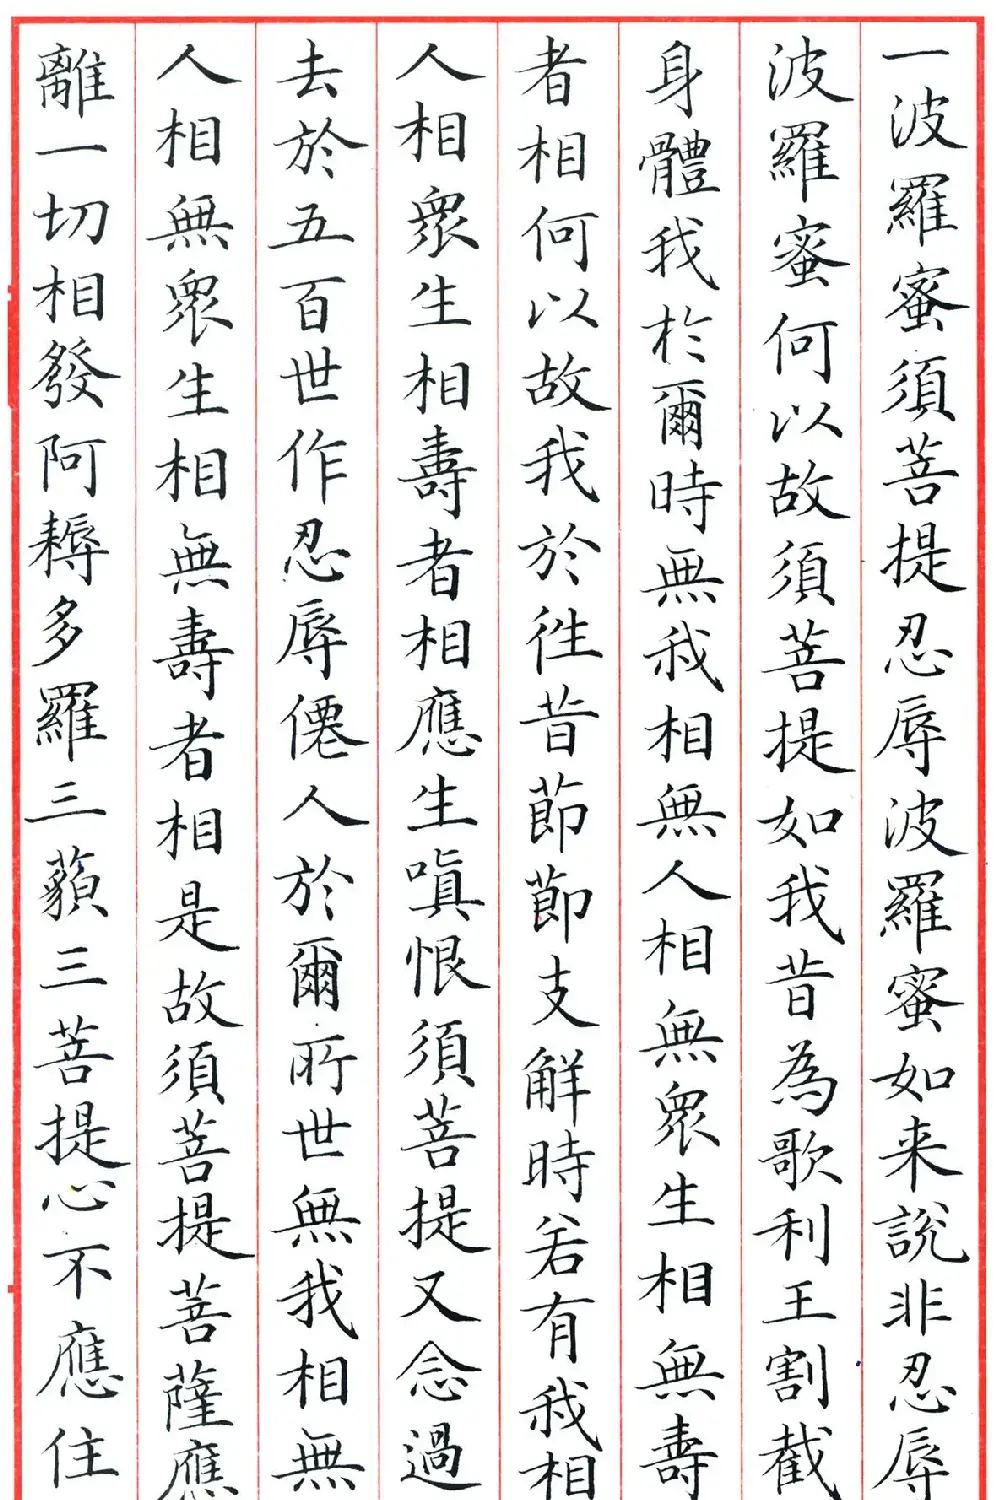 一波羅蜜須菩提忍辱波羅蜜如来說非忍辱
波羅蜜何以故須菩提如我昔為歌利王割截
身體我於爾時無我相無人相無衆生相無壽
者相何以故我於徃昔節節支解時若有我相
人相衆生相壽者相應生嗔恨須菩提又念過
去於五百世作忍辱僊人於爾所世無我相無
人相無衆生相無壽者相是故須菩提菩薩應
離一切相發阿耨多羅三藐三菩提心不應住